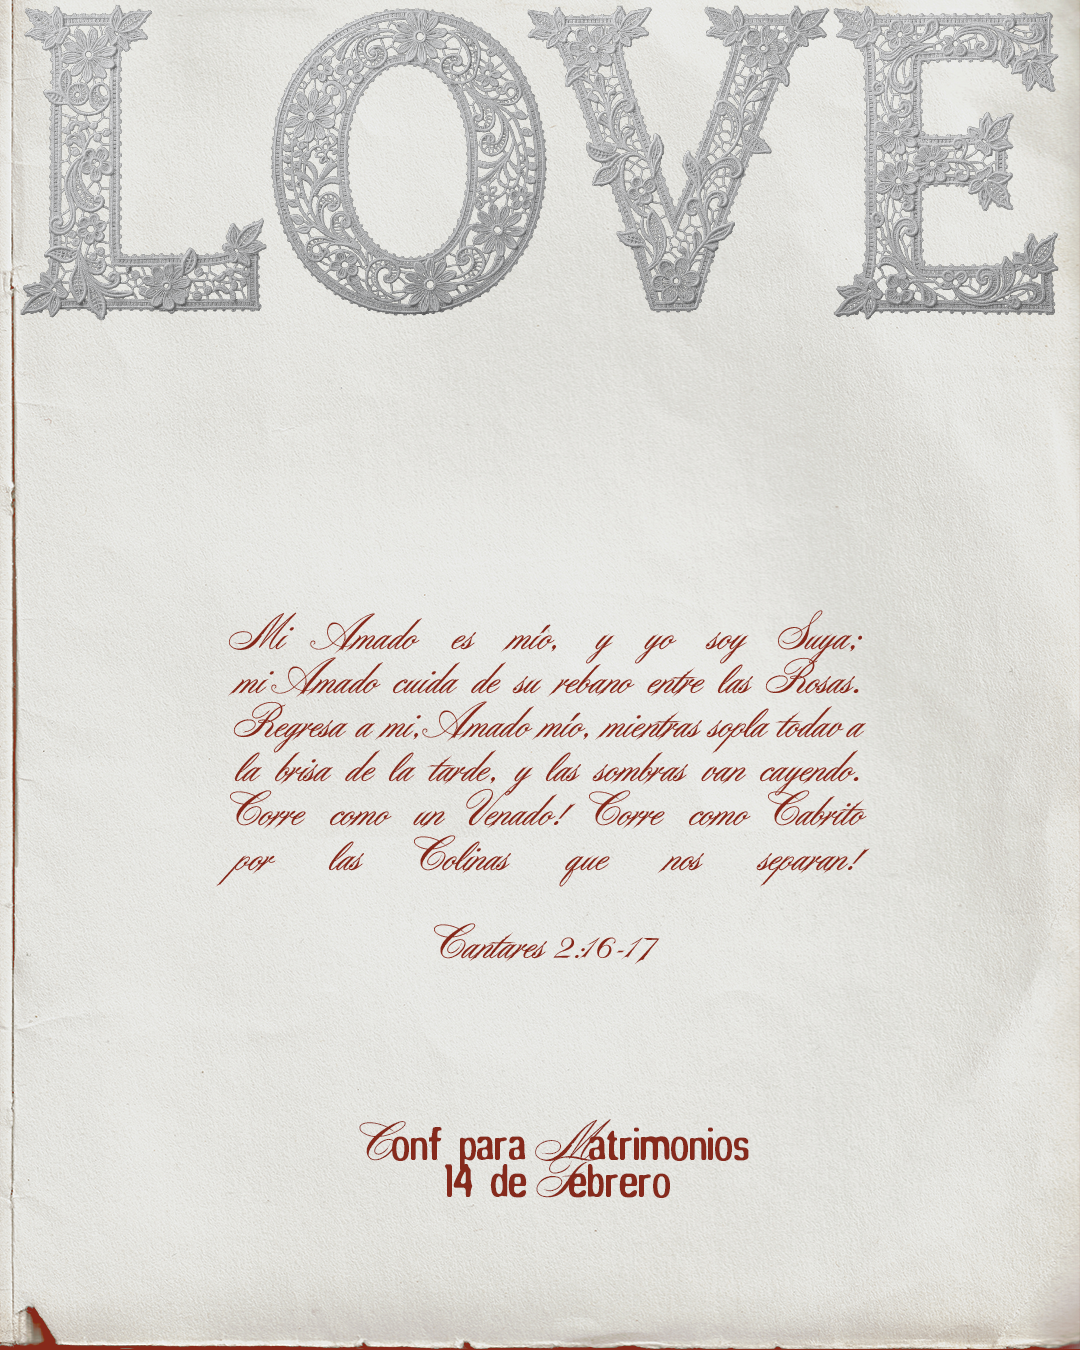 LOVE
Mi Amado es mío, y yo soy Suya;
mi Amado cuida de su rebano entre las Rosas.
Regresa a mi, Amado mío, mientras sopla todav a
la brisa de la tarde, y las sombras van cayendo.
Corre como un Venado! Corre como Cabrito
por las Colinas que nos separan!
Cantares 2:16-17
Conf para Matrimonios
14 de Febrero